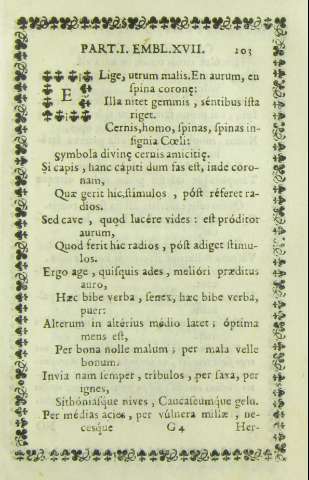 PART. I. EMBL. XVII. 103
ELige, utrum malis. En aurum, en
spina coronę:
Illa nitet gemmis, séntibus ista
riget.
Cernis, homo, spinas, spinas in-
signia Cœli:
Symbola divinę cernis amicitię.
Si capis, hanc cápiti dum fas est, inde coro-
nam,
Quæ gerit hic stimulos, póst réferet ra-
dios.
Sed cave, quod lucére vides: est próditor
aurum,
Quod ferit hic radios, póst adiget stimu-
los.
Ergo age, quisquis ades, melióri præditus
auro,
Hæc bibe verba, senex, hæc bibe verba,
puer:
Alterum in altérius médio latet; óptima
mens est,
Per bona nolle malum; per mala velle
bonum.
Invia nam semper, tribulos, per saxa, per
ignes,
Sithóniasque nives, Caucaseumque gelu.
Per médias acies, per vúlnera mille, ne-
césque
G 4 Her-